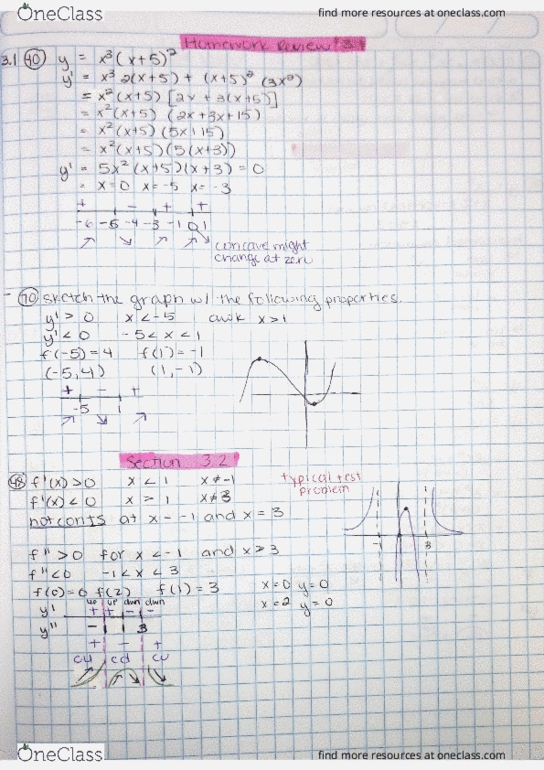 OneClass
find more resources at oneclass.com
Homework Review 3.1
3.1 (40) y = x³(x+5)²
y' = x³ 2(x+5) + (x+5)² (3x²)
= x²(x+5) [2x + 3(x+5)]
= x²(x+5) (2x + 3x + 15)
= x²(x+5) (5x+15)
= x²(x+5)(5(x+3))
y' = 5x²(x+5)(x+3) = 0
= x=0 x=-5 x=-3
+ - + +
-6 -5 -4 -3 -1 0 1
concave might
change at zero
70 sketch the graph w/ the following properties.
y' > 0 x < -5 x > 1
y' < 0 -5 < x < 1
f(-5) = 4 f(1) = -1
(-5, 4) (1, -1)
+ - +
-5 1
Section 3.2
48 f'(x) > 0 x < 1 x ≠ -1
f'(x) < 0 x > 1 x ≠ 3
not conts at x = -1 and x = 3
typical test
problem
-1 3
f'' > 0 for x < -1 and x > 3
f'' < 0 -1 < x < 3
f(0) = 0 f(2) f(1) = 3
x=0 y=0
x=2 y=0
up up dwn dwn
y' + + - -
y'' -1 1 3
+ - +
cu cd cu
OneClass
find more resources at oneclass.com